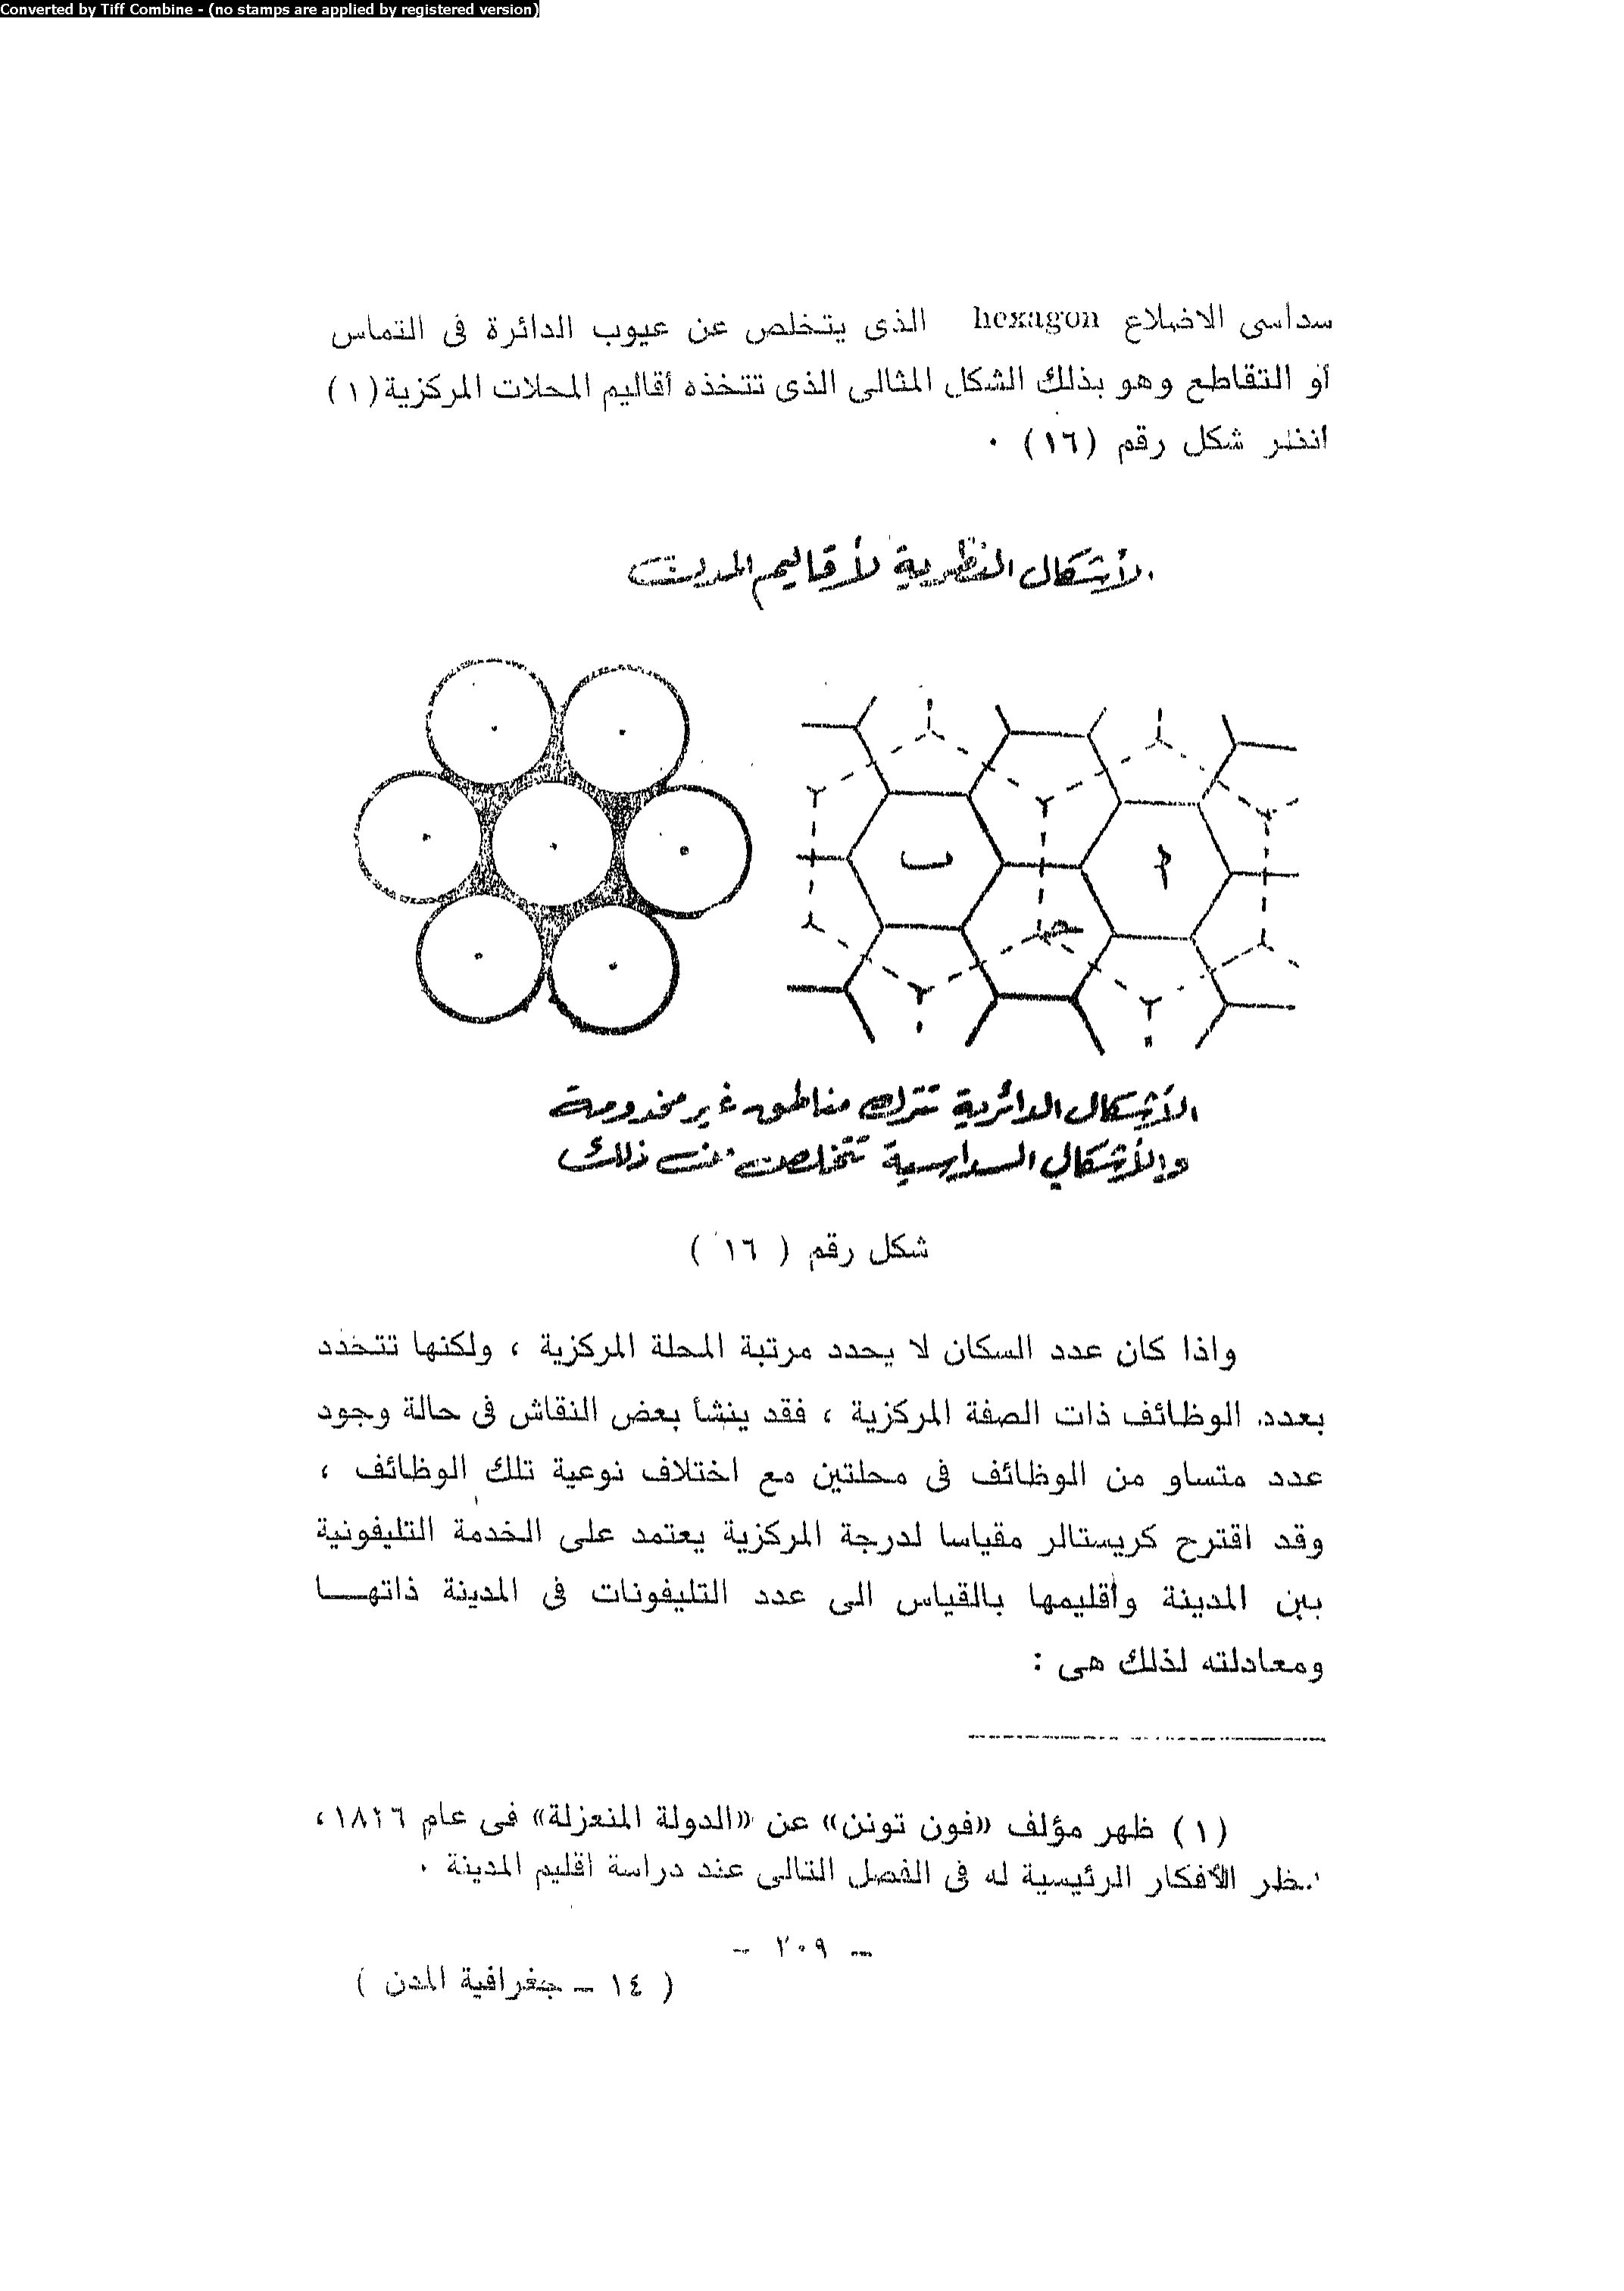 Converted by Tiff Combine - (no stamps are applied by registered version)
سداسى الاضلاع hexagon الذى يتخلص عن عيوب الدائرة فى التماس
أو التقاطع وهو بذلك الشكل المثالى الذى تتخذه أقاليم المحلات المركزية (١)
انظر شكل رقم (١٦) ٠
الأشكال النظرية لأقاليم المدن
ب
أ
جـ
الأشكال الدائرية تترك مناطق غير مخدومة
والأشكال السداسية تتخلص من ذلك
شكل رقم ( ١٦ )
واذا كان عدد السكان لا يحدد مرتبة المحلة المركزية ، ولكنها تتحدد
بعدد الوظائف ذات الصفة المركزية ، فقد ينشأ بعض النقاش فى حالة وجود
عدد متساو من الوظائف فى محلتين مع اختلاف نوعية تلك الوظائف ،
وقد اقترح كريستالر مقياسا لدرجة المركزية يعتمد على الخدمة التليفونية
بين المدينة وأقليمها بالقياس الى عدد التليفونات فى المدينة ذاتهـــا
ومعادلته لذلك هى :
(١) ظهر مؤلف «فون تونن» عن «الدولة المنعزلة» فى عام ١٨٢٦ ،
انظر الأفكار الرئيسية له فى الفصل التالى عند دراسة اقليم المدينة ٠
– ٢٠٩ –
( ١٤ – جغرافية المدن )